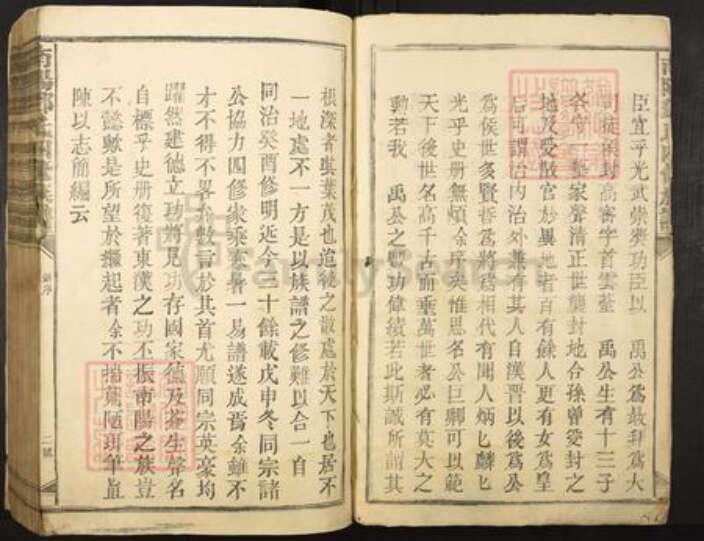 臣宜乎光武崇奬功臣以 禹公爲最拜爲大
司徒再封高密字首雲臺 禹公生有十三子
各守一藝家聲清正世襲封地合孫曾受封之
地及受散官於異地者百有餘人更有女爲皇
后可謂治內治外兼有其人自漢晋以後爲公
爲侯世多賢哲爲將爲相代有聞人炳匕麟匕
光乎史册無煩余琑矣惟思名公巨卿可以範
天下後世名高千古而垂萬世者必有莫大之
動若我 禹公之豐功偉績若此斯誠所謂其
根深者其葉茂也迨後之散處於天下也居不
一地處不一方是以族譜之修難以合一自
同治癸酉修明近今三十餘載戊申冬同宗諸
公協力四修家乘寒暑一易譜遂成焉余雖不
才不得不畧弁數言於其首尤願同宗英豪均
躍然建德立功將見功存國家德及蒼生聲名
自標乎史册復著東漢之功丕振南陽之族豈
不懿歟是所望於繼起者余不揣荒陋珥筆直
陳以志簡編云
新序
二號